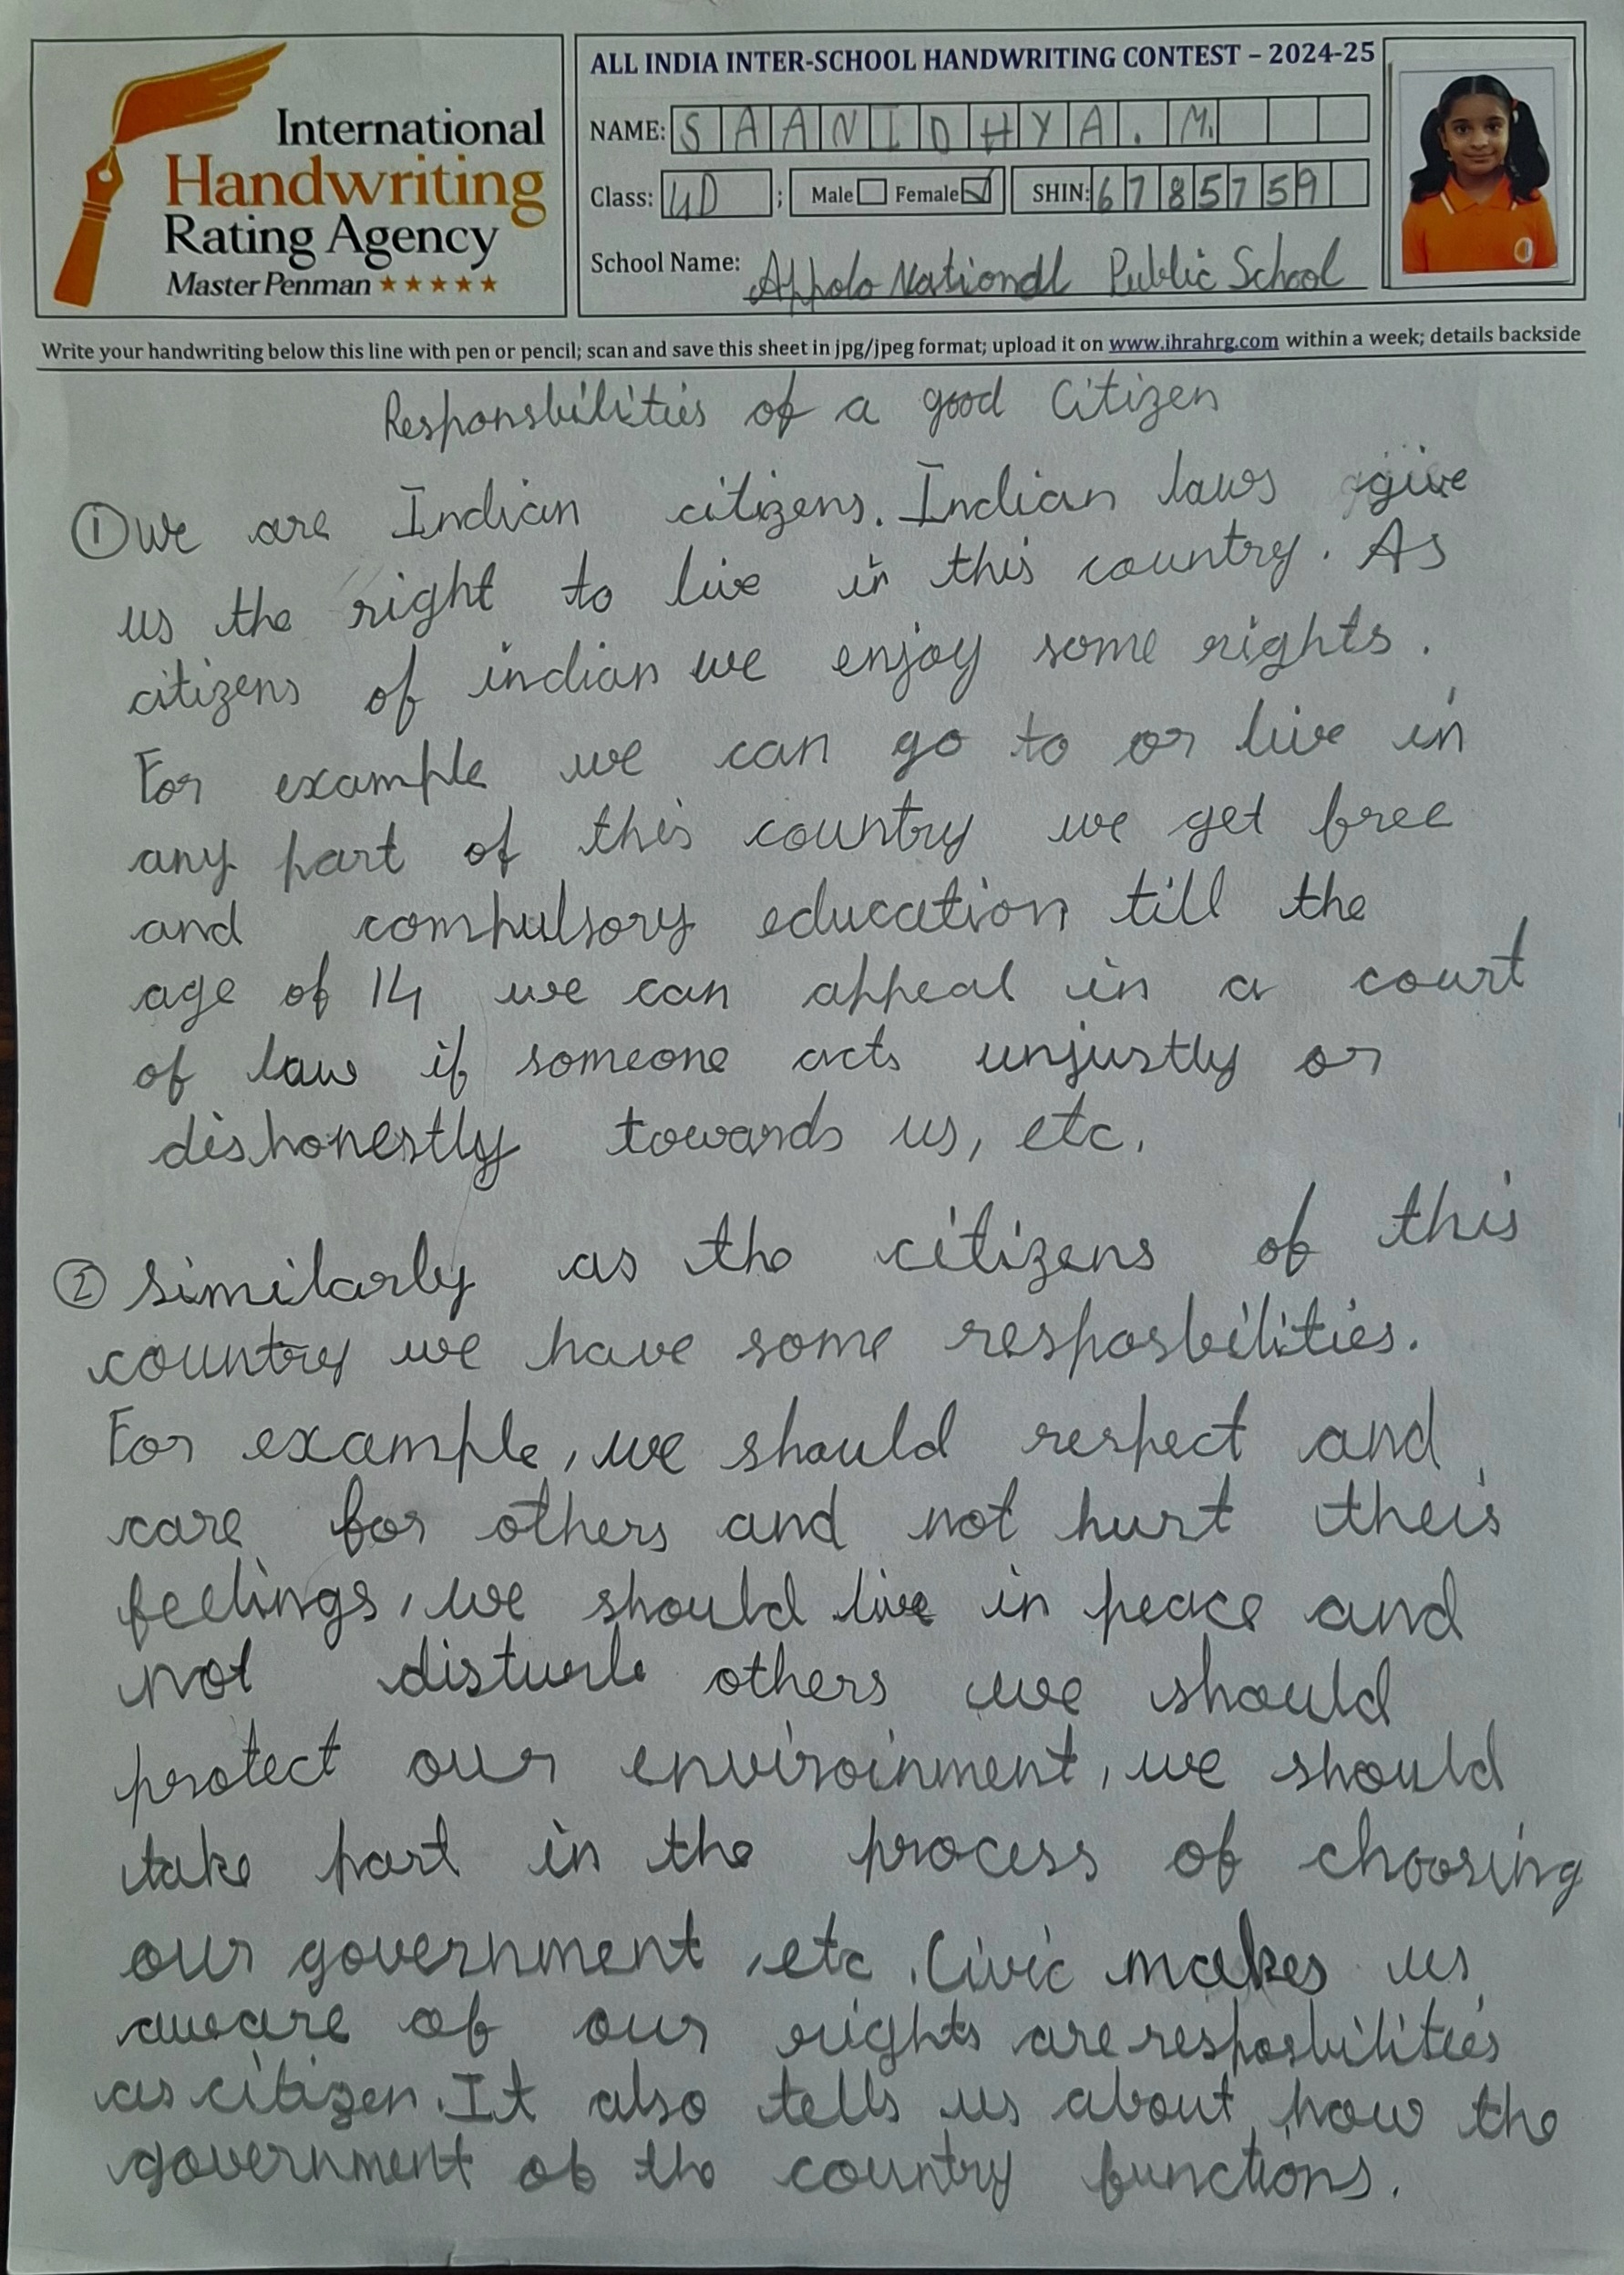 International
Handwriting
Rating Agency
Master Penman ★★★★★
ALL INDIA INTER-SCHOOL HANDWRITING CONTEST – 2024-25
NAME: SAANIDHYA. M.
Class: 4D ; Male Female SHIN: 6785759
School Name: Appolo National Public School
Write your handwriting below this line with pen or pencil; scan and save this sheet in jpg/jpeg format; upload it on www.ihrahrg.com within a week; details backside
Responsbilities of a good Citizen
① we are Indian citizens. Indian laws give
us the right to live in this country. As
citizens of indian we enjoy some rights.
For example we can go to or live in
any part of this country we get free
and compulsory education till the
age of 14 we can appeal in a court
of law if someone acts unjustly or
dishonestly towards us, etc.
② similarly as the citizens of this
country we have some resposbilities.
For example, we should respect and
care for others and not hurt theis
feelings, we should live in peace and
not disturb others we should
protect our enviroinment, we should
take part in the process of choosing
our government, etc. Civic makes us
aware of our rights are resposbilities
as citizen. It also tells us about how the
government of the country functions.